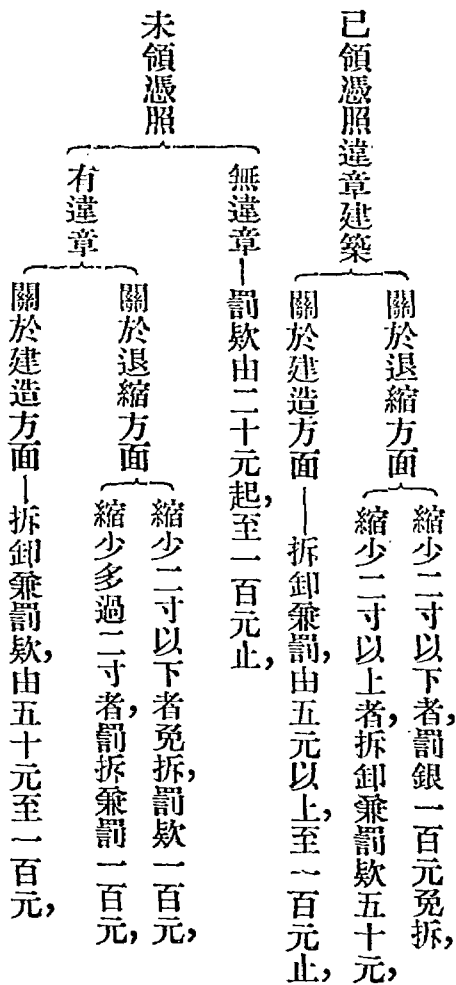 已領憑照違章建築
關於退縮方面
縮少二寸以下者,罰銀一百元免拆,
縮少二寸以上者,拆卸兼罰欵五十元,
關於建造方面——拆卸兼罰,由五元以上,至一百元止,
未領憑照
無違章—罰欵由二十元起,至一百元止,
有違章
關於退縮方面
縮少二寸以下者免拆,罰欵一百元,
縮少多過二寸者,罰拆兼罰一百元,
關於建造方面—拆卸兼罰欵,由五十元至一百元,